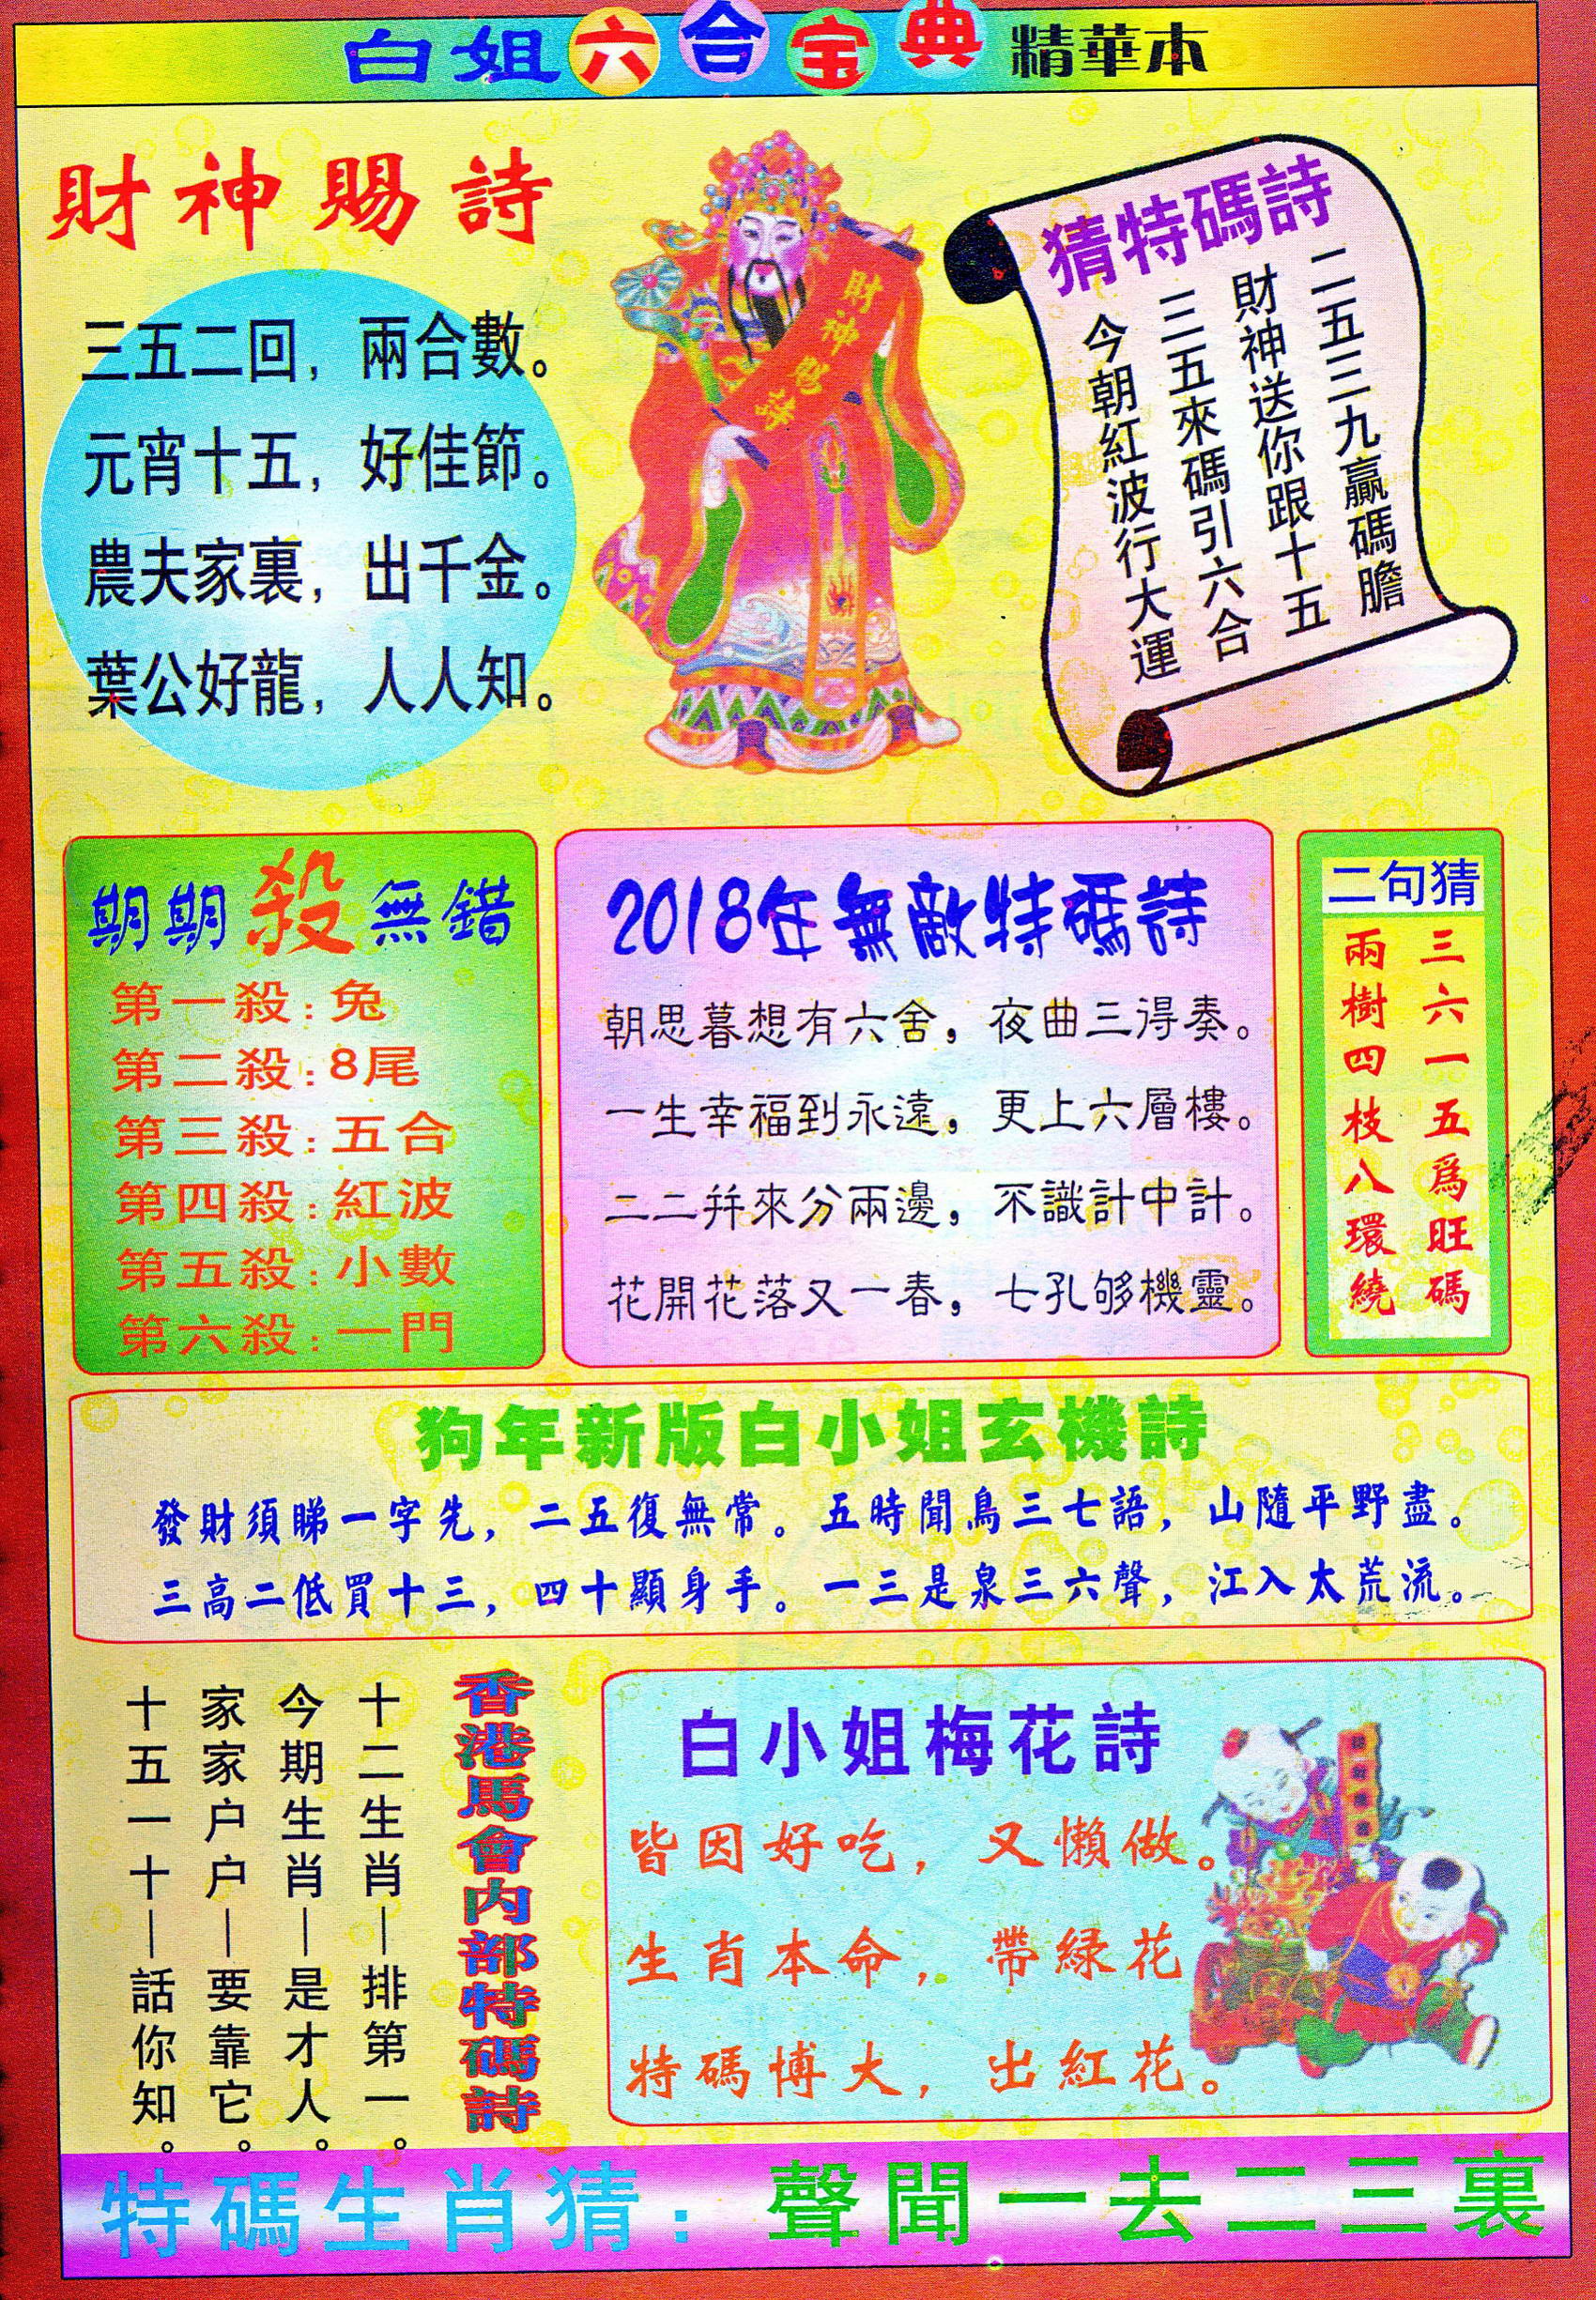 白姐六合宝典精華本
財神賜詩
三五二回，兩合數。
元宵十五，好佳節。
農夫家裏，出千金。
葉公好龍，人人知。
財神賜詩
猜特碼詩
二五三九贏碼膽
財神送你跟十五
三五來碼引六合
今朝紅波行大運
期期殺無錯
第一殺:兔
第二殺:8尾
第三殺:五合
第四殺:紅波
第五殺:小數
第六殺:一門
2018年無敵特碼詩
朝思暮想有六舍，夜曲三得奏。
一生幸福到永遠，更上六層樓。
二二并來分兩邊，不識計中計。
花開花落又一春，七孔够機靈。
二句猜
三六一五爲旺碼
兩樹四枝八環繞
狗年新版白小姐玄機詩
發財須睇一字先，二五復無常。五時聞鳥三七語，山隨平野盡。
三高二低買十三，四十顯身手。一三是泉三六聲，江入太荒流。
香港馬會内部特碼詩
十二生肖—排第一。
今期生肖—是才人。
家家户户—要靠它。
十五一十—話你知。
白小姐梅花詩
皆因好吃，又懶做。
生肖本命，帶緑花
特碼博大，出紅花。
特碼生肖猜：聲聞一去二三裏